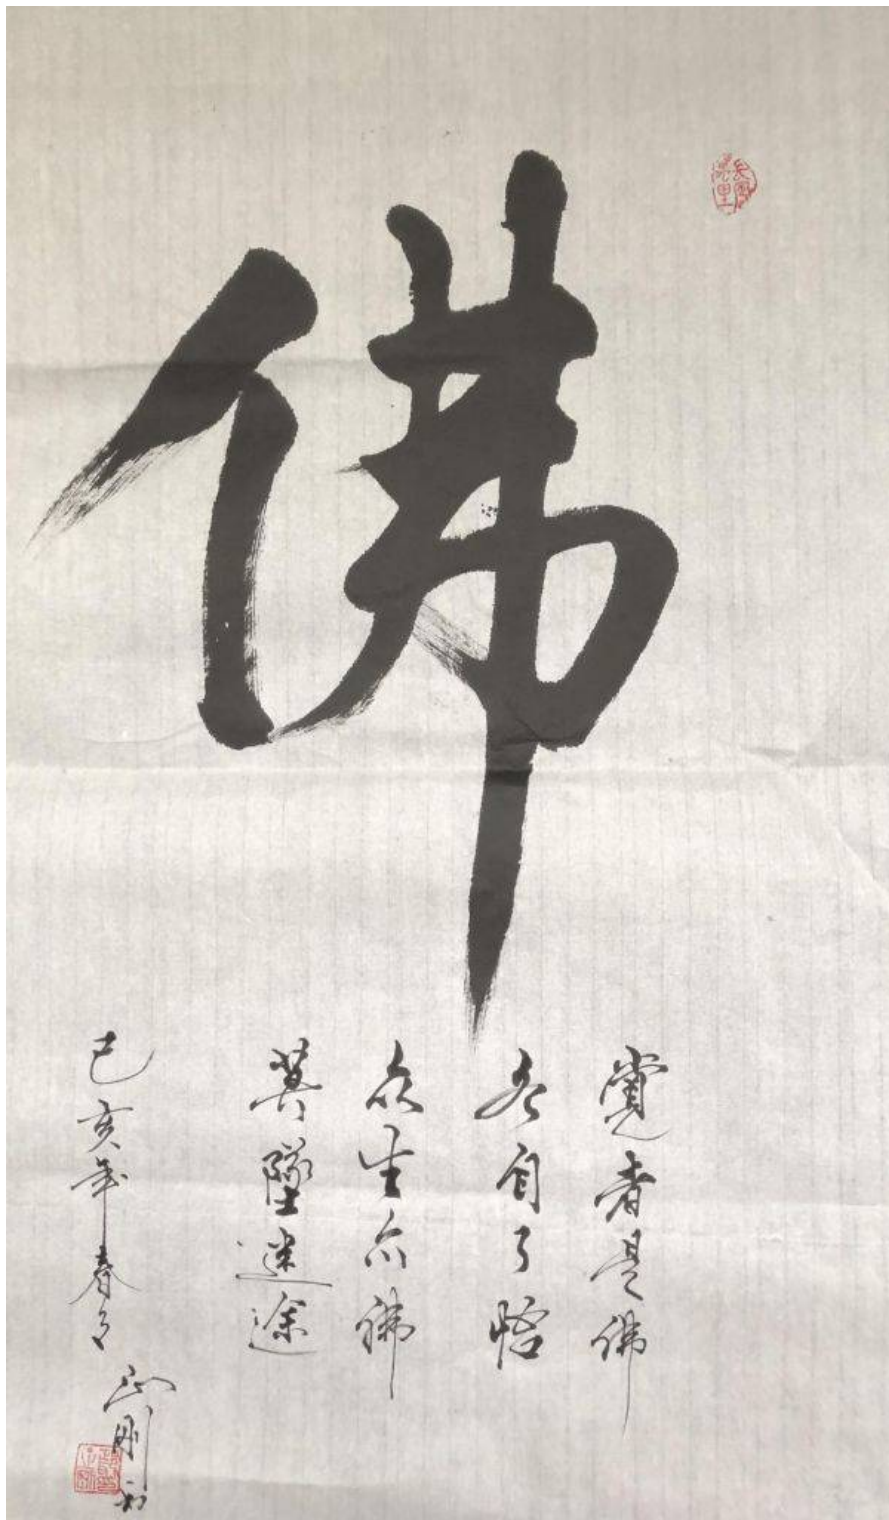 佛
覺者是佛
各自了悟
众生亦佛
莫墜迷途
己亥年春月